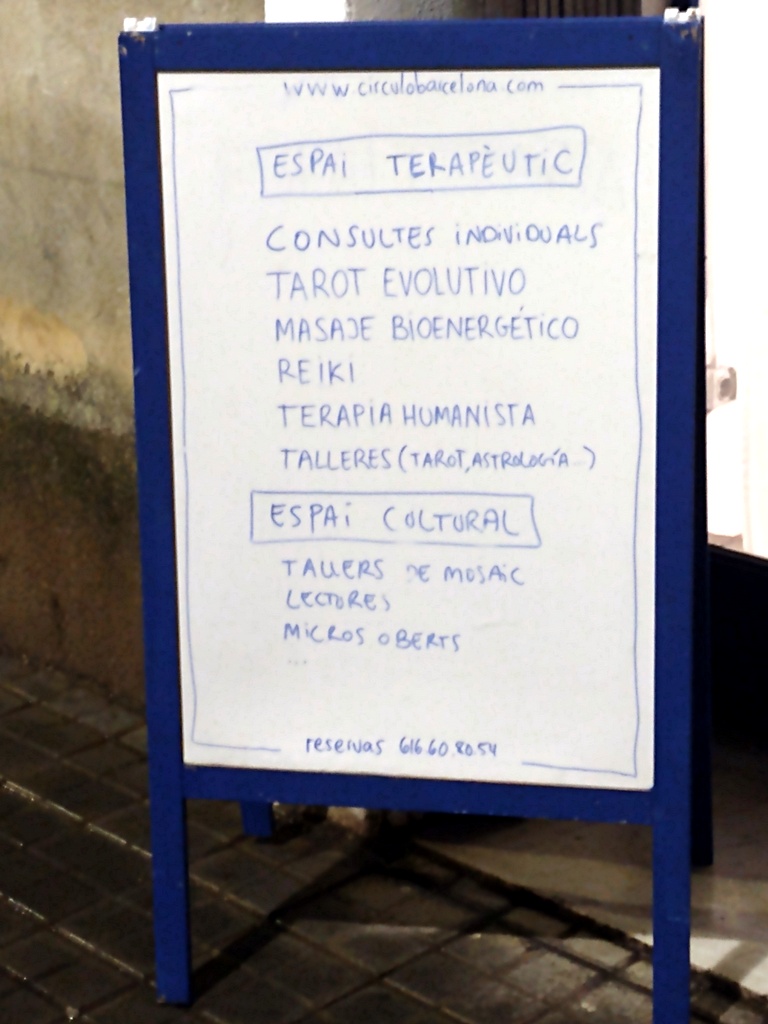 www.circulobarcelona.com
ESPAi TERAPÈUTiC
CONSULTES iNDiViDUALS
TAROT EVOLUTIVO
MASAJE BiOENERGÉTiCO
REiKi
TERAPiA HUMANISTA
TALLERES (TAROT, ASTROLOGÍA...)
ESPAi CULTURAL
TALLERS DE MOSAiC
LECTURES
MiCROS OBERTS
...
reservas 616.60.80.54